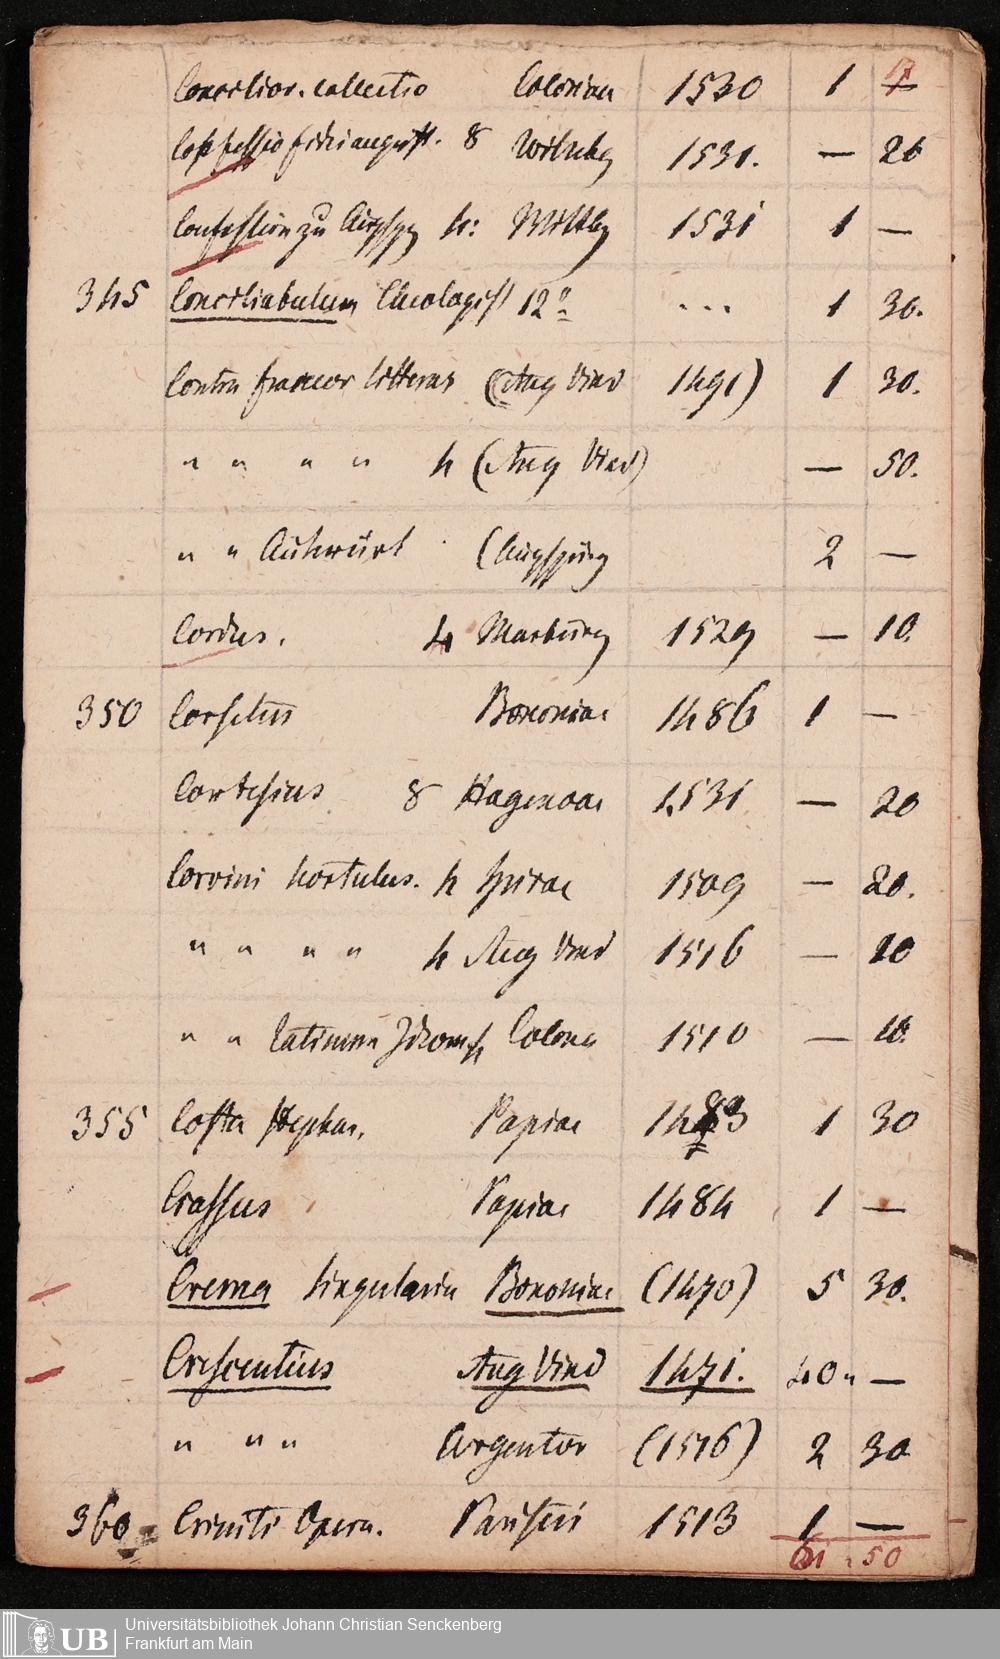 Concilior. collectio Coloniae 1530 1 17
Confessio fidei august. 8 Witebg 1531. — 26
Confession zu Augspg 4: Wittbg 1531 1 —
345 Conciliabulum Theologist 12° ... 1 30.
Contra francor litteras (Aug Vind 1491) 1 30.
" " " " 4 (Aug Vind) — 50.
" " Antwürt (Augspurg 2 —
Cordus. 4 Marburg 1529 — 10.
350 Corsetus Bononiae 1486 1 —
Cortesius 8 Hagenoae 1531 — 20
Corvini hortulus. 4 Spirae 1509 — 20.
" " " " 4 Aug Vind 1516 — 10
" " Latinum Idiom 4 Colona 1510 — 10.
355 Costa Stephan. Papiae 1483 1 30
Crassus Papiae 1484 1 —
Crema Singularia Bononiae (1470) 5 30.
Crescentius Aug Vind 1471. 40 " —
" " " Argentor (1516) 2 30
360 Criniti Opera. Parisiis 1513 1 —
61 . 50
Universitätsbibliothek Johann Christian Senckenberg
UB Frankfurt am Main